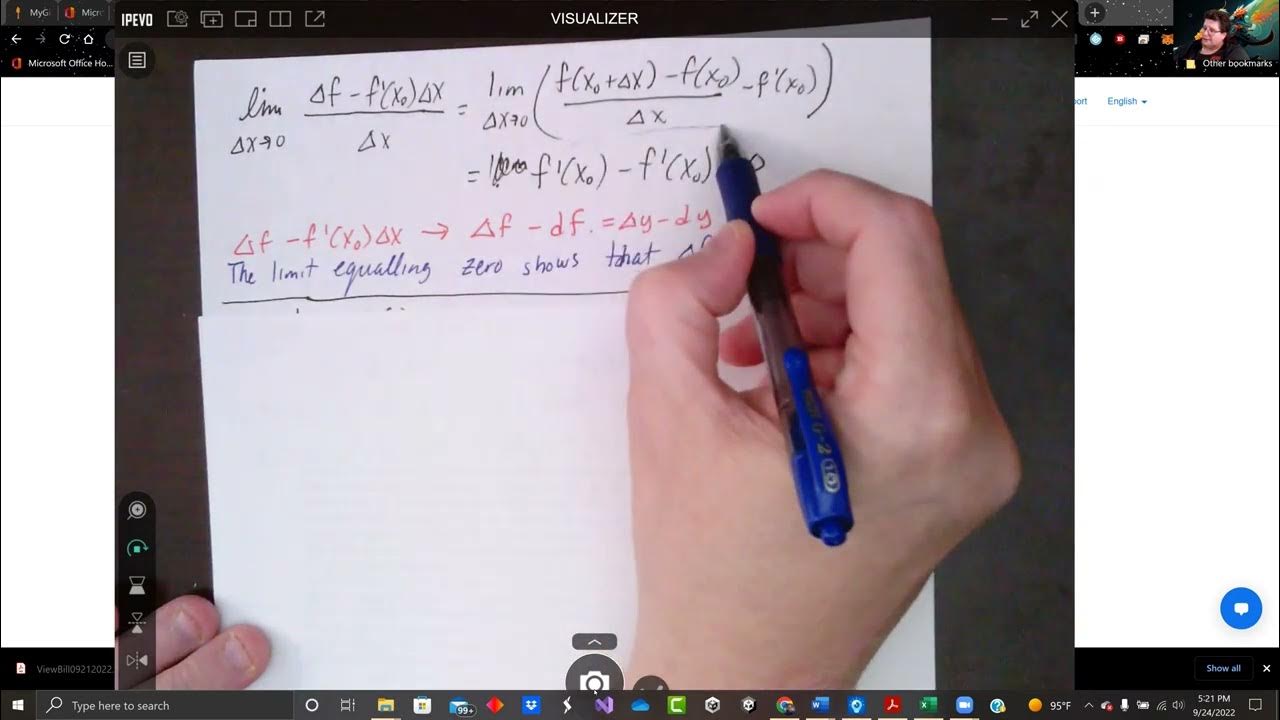 MyGi
Micr
IPEVO
VISUALIZER
Microsoft Office Ho...
Other bookmarks
ort
English
lim Δx→0 Δf - f'(x₀)Δx / Δx = lim Δx→0 ( f(x₀+Δx) - f(x₀) / Δx - f'(x₀) )
= f'(x₀) - f'(x₀)
Δf - f'(x₀)Δx → Δf - df. = Δy - dy
The limit equalling zero shows that
ViewBill09212022
Show all
Type here to search
99+
95°F
5:21 PM
9/24/2022
G-2
10